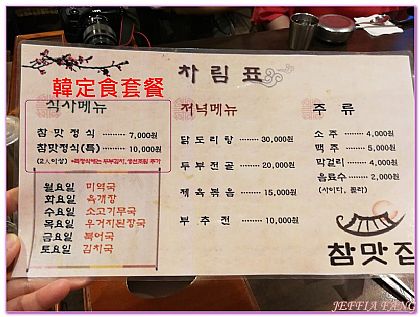 차림표
韓定食套餐
식사메뉴
참맛정식 ········ 7,000원
참맛정식(특) ····· 10,000원
(2人이상) *특정식에는 두부김치, 생선조림 추가
월요일 미역국
화요일 육개장
수요일 소고기무국
목요일 우거지된장국
금요일 북어국
토요일 김치국
저녁메뉴
닭도리탕 ········ 30,000원
두부전골 ········ 20,000원
제육볶음 ········ 15,000원
부추전 ········ 10,000원
주류
소주 ········ 4,000원
맥주 ········ 5,000원
막걸리 ········ 4,000원
음료수 ········ 2,000원
(사이다, 콜라)
참맛집
JEFFIA FANG